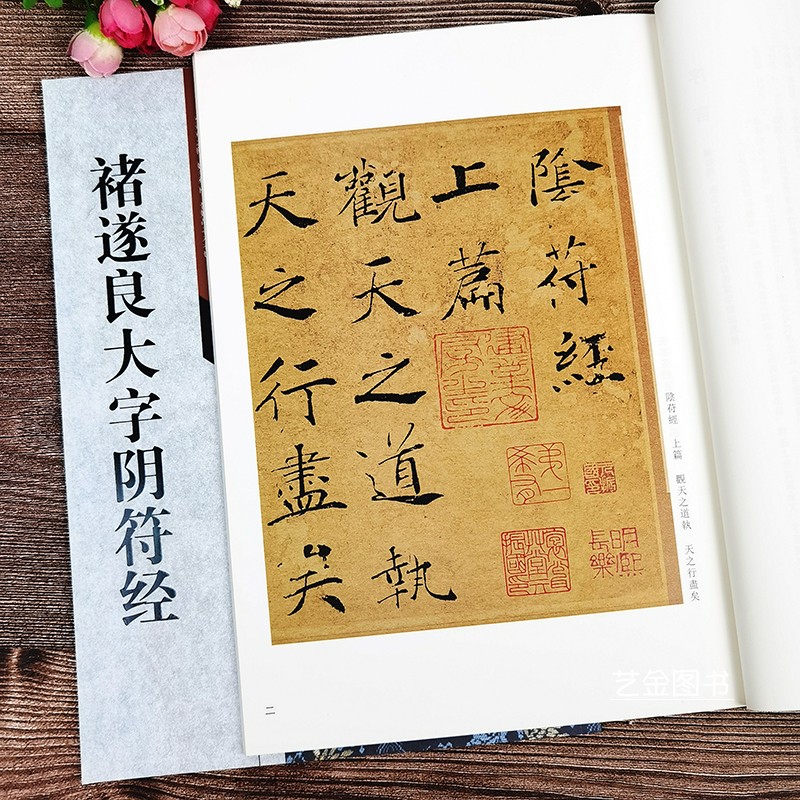 褚遂良大字阴符经
陰符經
上篇
觀天之道執
天之行盡矣
明熙
長樂
陰符經　上篇　觀天之道執　天之行盡矣
二
艺金图书